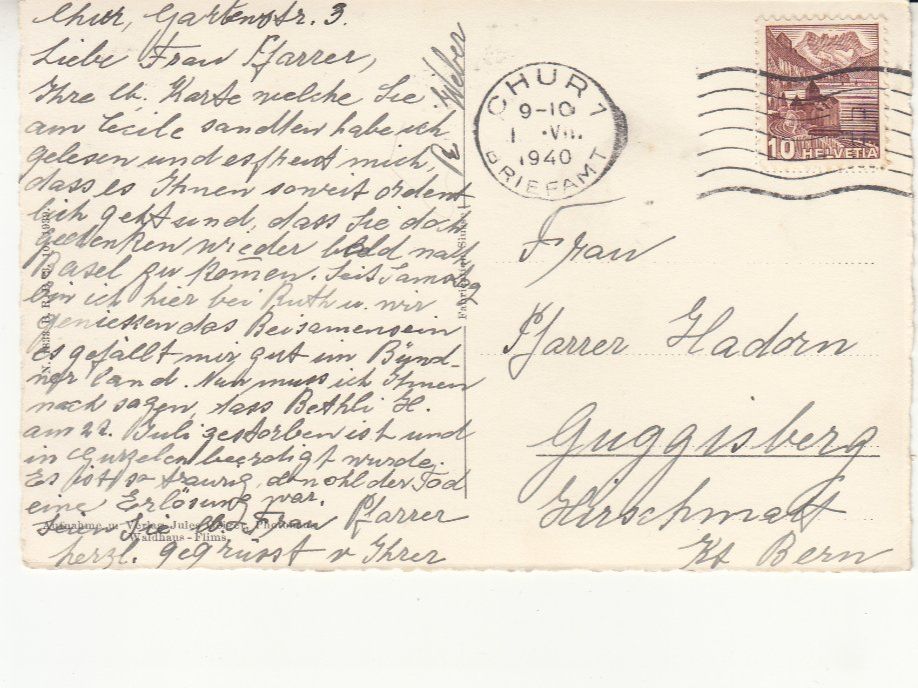 Chur, Gartenstr. 3.
Liebe Frau Pfarrer,
Ihre lb. Karte welche Sie
am Cécile sandten habe ich
gelesen und es freut mich,
dass es Ihnen soweit ordent
lich geht und, dass Sie doch
gedenken wieder bald nach
Basel zu komen. Seit Samstag
bin ich hier bei Ruth u. wir
geniessen das Beisamensein
es gefällt mir gut im Bünd-
ner land. Nun muss ich Ihnen
noch sagen, dass Bethli H.
am 22. Juli gestorben ist und
in Gurzelen beerdigt wurde.
Es ist so traurig, obwohl der Tod
eine Erlösung war.
Seien Sie lb. Frau Pfarrer
herzl. gegrüsst v Ihrer
R. Weber
Aufnahme u. Verlag Jules Geiger,
Waldhaus-Flims
CHUR 1
9-10
1 VIII.
1940
BRIEFAMT
10 HELVETIA
Frau
Pfarrer Hadorn
Guggisberg
Hirschmatt
Kt Bern